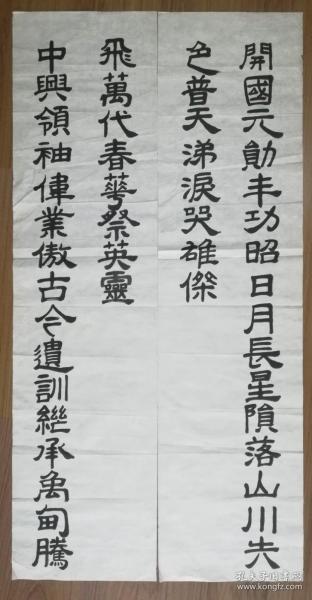 開國元勛丰功昭日月長星隕落山川失
色普天涕淚哭雄傑
中興領袖偉業傲古今遺訓繼承禹甸騰
飛萬代春華祭英靈